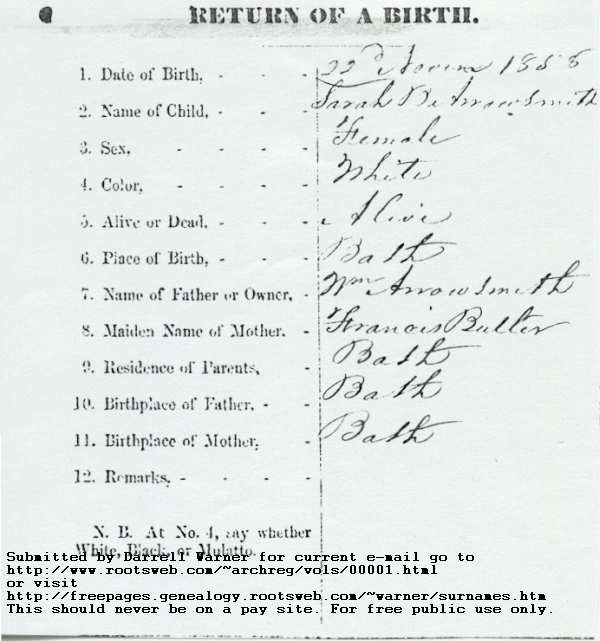 RETURN OF A BIRTH.
1. Date of Birth, - - - 22d Novem 1858
2. Name of Child, - - - Sarah B Arrowsmith
3. Sex, - - - - Female
4. Color, - - - - White
5. Alive or Dead, - - - Alive
6. Place of Birth, - - - Bath
7. Name of Father or Owner, - Wm Arrowsmith
8. Maiden Name of Mother. - Francis Butler
9. Residence of Parents, - Bath
10. Birthplace of Father, - - Bath
11. Birthplace of Mother, - Bath
12. Remarks, - - - -
N. B. At No. 4, say whether
White, Black, or Mulatto.
Submitted by Darrell Warner for current e-mail go to
http://www.rootsweb.com/~archreg/vols/00001.html
or visit
http://freepages.genealogy.rootsweb.com/~warner/surnames.htm
This should never be on a pay site. For free public use only.